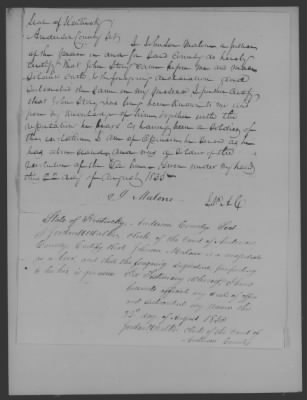 State of Kentucky
Anderson County Sct I Johnson Malone a Justice
of the peace in and for Said County do hereby
Certify that John Story Came before me and made
Solemn Oath to the foregoing declaration and
Subscribed the Same in my presence I further Certify
that John Story has long been known to me and
from my knowledge of him together with the
reputation he bears as having been a Soldier of
the revolution I am of Opinion he Served as he
has above stated and was a Soldier of the
revolution Given under my hand
this 22 day of August 1835
J Malone J.P. A.C.
State of Kentucky, Anderson County Sct
I Jordan H Walker Clerk of the Court of Anderson
County Certify that Johnson Malone is a magistrate
as above and that the foregoing Signature purporting
to be his is genuine In Testimony whereof I have
hereunto affixed my seal of office
and subscribed my name this
22d day of August 1835
Jordan H Walker Clerk of the Court of
Anderson County